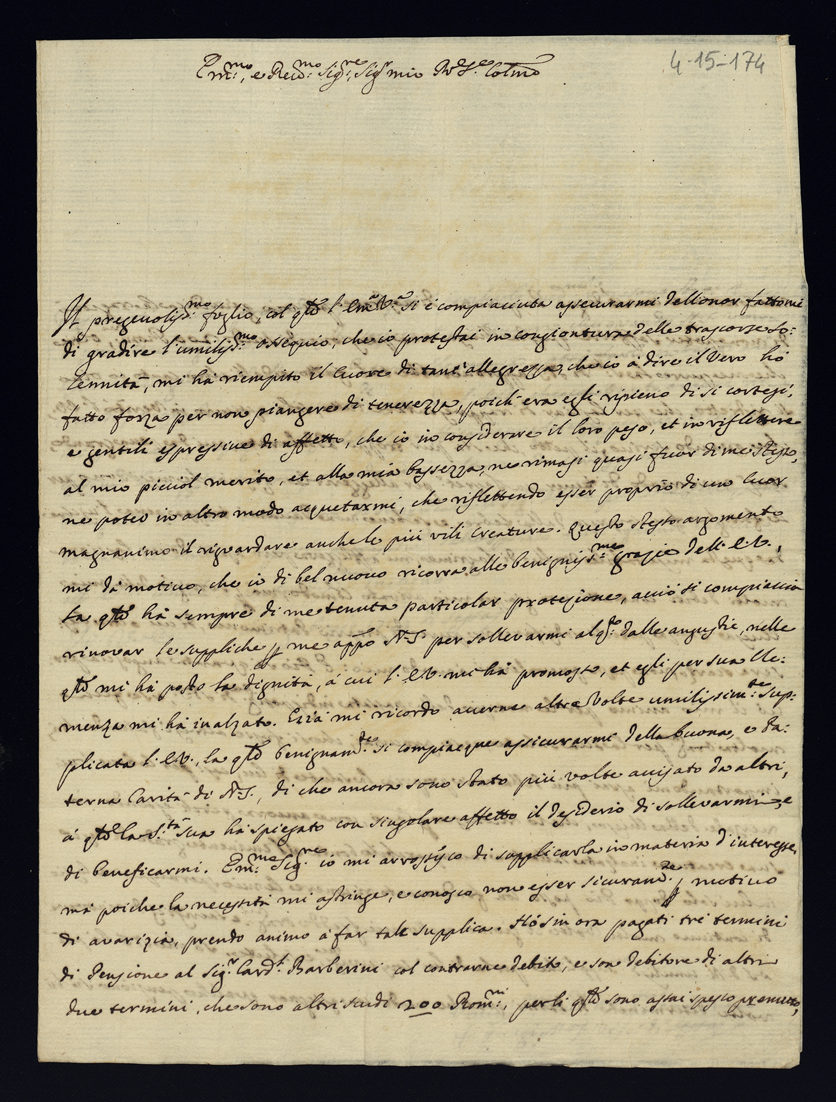 Em.mo, e Reu.mo Sig.re Sig.r mio P.ne Col.mo
4-15-174
Il pregeuoliss.mo foglio, col qle l'Em.a V.a si è compiaciuta assicurarmi dell'onor fattomi
di gradire l'umiliss.mo ossequio, che io protestai in congiontura delle trascorse So:
lennità, mi hà riempito il Cuore di tant'allegrezza, che io à dire il Vero hò
fatto forza per non piangere di tenerezza, poich'era egli ripieno di sì cortesi,
e gentili espressiue di affetto, che io in considerare il loro peso, et in riflettere
al mio picciol merito, et alla mia bassezza, ne rimasi quasi fuor di me stesso,
ne poteo in altro modo acquetarmi, che riflettendo esser proprio di un Cuor
magnanimo il riguardare anche le più vili Creature. Questo stesso argomento
mi dà motiuo, che io di bel nuouo ricorra alle benigniss.me grazie dell'E.V.,
la qle hà sempre di me tenuta particolar protezione, acciò si compiaccia
rinouar le suppliche p me appo N.S. per solleuarmi al q.to dalle angustie, nelle
qli mi hà posto la dignità, à cui l'E.V. mi hà promosso, et egli per sua Cle:
menza mi hà inalzato. Essa mi ricordo auerne altre Volte umilissim.te sup:
plicata l'E.V., la qle benignam.te si compiacque assicurarmi della buona, e pa:
terna Carità di N.S., di che ancora sono stato più volte auisato da altri,
à qli la S.tà Sua hà spiegato con singolare affetto il desiderio di solleuarmi, e
di beneficarmi. Em.mo Sig.re io mi arrossisco di supplicarla in materia d'interesse,
mà poiche la necessità mi astringe, e conosco non esser sicuram.te p motiuo
di auarizia, prendo animo à far tale supplica. Hò sin ora pagati trè termini
di Pensione al Sig.r Card.l Barberini col contrarne debito, e son debitore di altri
due termini, che sono altri scudi 200 Rom.ni, per li qli sono assai spesso premuto,